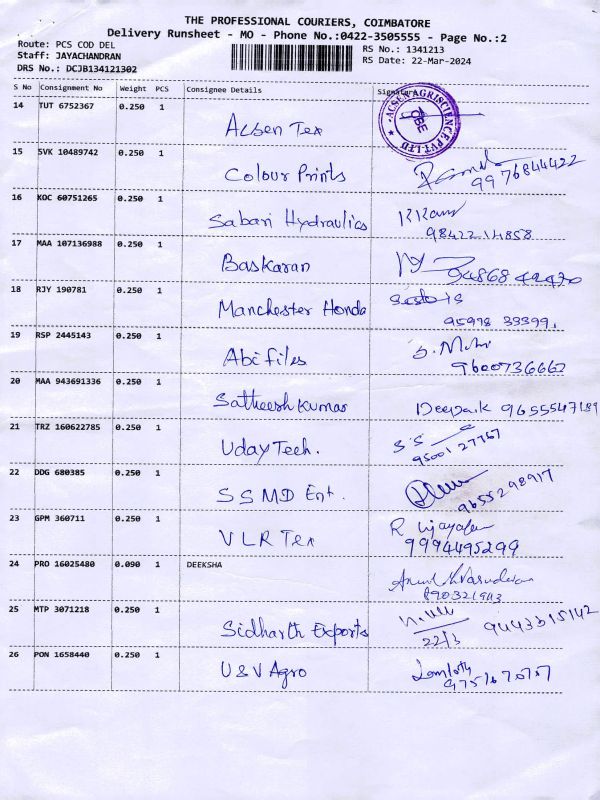 THE PROFESSIONAL COURIERS, COIMBATORE
Delivery Runsheet - MO - Phone No.:0422-3505555 - Page No.:2
Route: PCS COD DEL
Staff: JAYACHANDRAN
DRS No.: DCJB134121302
RS No.: 1341213
RS Date: 22-Mar-2024
S No Consignment No Weight PCS Consignee Details Signature
14 TUT 6752367 0.250 1 Acsen Tex
ACSEN AGRISCIENCE PVT LTD
CBE
15 SVK 10489742 0.250 1 Colour Prints
9976844422
16 KOC 60751265 0.250 1 Sabari Hydraulics
98422 14858
17 MAA 107136988 0.250 1 Baskaran
18 RJY 190781 0.250 1 Manchester Honda
95978 33399.
19 RSP 2445143 0.250 1 Abi files
9600736662
20 MAA 943691336 0.250 1 Satheesh Kumar Deepak 9655547189
21 TRZ 160622785 0.250 1 Uday Tech. S.S
95001 27767
22 DDG 680385 0.250 1 SSMD Ent.
9655298917
23 GPM 360711 0.250 1 VLR Tex
9994495299
24 PRO 16025480 0.090 1 DEEKSHA
25 MTP 3071218 0.250 1 Sidharth Exports
22/3 9443315142
26 PON 1658440 0.250 1 U&V Agro